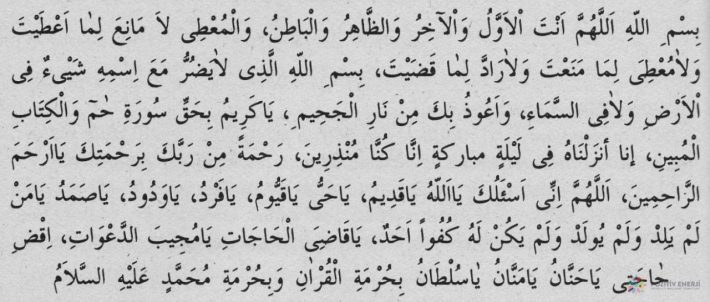 بِسْمِ اللّٰهِ اَللّٰهُمَّ اَنْتَ اْلاَوَّلُ وَاْلآخِرُ وَالظَّاهِرُ وَالْبَاطِنُ، وَالْمُعْطِى لاَ مَانِعَ لِمٰا اَعْطَيْتَ
وَلاٰمُعْطِىَ لِمَا مَنَعْتَ وَلاٰرَادَّ لِمٰا قَضَيْتَ، بِسْمِ اللّٰهِ الَّذِى لاٰيَضُرُّ مَعَ اِسْمِهِ شَيْىءٌ فِى
اْلاَرْضِ وَلاٰفِى السَّمَاءِ، وَاَعُوذُ بِكَ مِنْ نَارِ الْجَحِيمِ، يَاكَرِيمُ بِحَقِّ سُورَةِ حٰمٓ وَالْكِتَابِ
الْمُبِينِ، إنا أنزَلْنَاهُ فِى لَيْلَةٍ مباركةٍ اِنَّا كُنَّا مُنْذِرِينَ، رَحْمَةً مِنْ رَبِّكَ بِرَحْمَتِكَ يٰااَرْحَمَ
الرَّاحِمِينَ، اَللّٰهُمَّ اِنِّى اَسْئَلُكَ يٰااَللّٰهُ يَاقَدِيمُ، يَاحَىُّ يٰاقَيُّومُ، يَافَرْدُ، يَاوَدُودُ، يَاصَمَدُ يَامَنْ
لَمْ يَلِدْ وَلَمْ يُولَدْ وَلَمْ يَكُنْ لَهُ كُفُواً اَحَدٌ، يَاقَاضِىَ الْحَاجَاتِ يَامُجِيبَ الدَّعْوَاتِ، اِقْضِ
حٰاجَتِى يَاحَنَّانُ يَامَنَّانُ يٰاسُلْطَانُ بِحُرْمَةِ الْقُرْاٰنِ وَبِحُرْمَةِ مُحَمَّدٍ عَلَيْهِ السَّلاٰمُ
POZİTİV ENERJİ